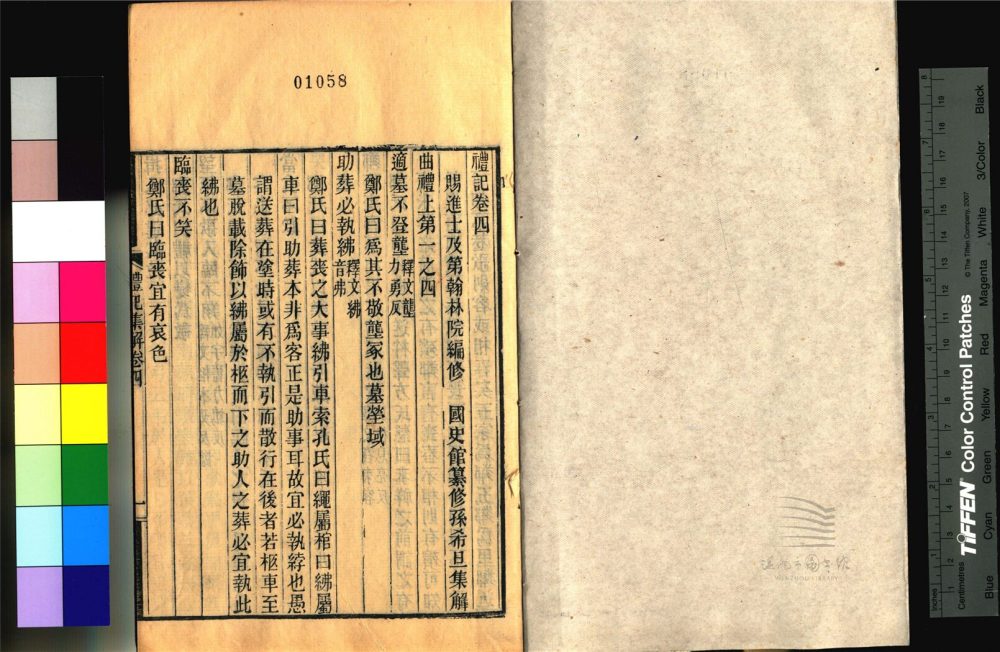 01058
禮記卷四
賜進士及第翰林院編修 國史館纂修孫希旦集解
曲禮上第一之四
適墓不登壟釋文壟力勇反
鄭氏曰爲其不敬壟冢也墓塋域
助葬必執紼釋文紼音弗
鄭氏曰葬喪之大事紼引車索孔氏曰繩屬棺曰紼屬
車曰引助葬本非爲客正是助事耳故宜必執紼也愚
謂送葬在塗時或有不執引而散行在後者若柩車至
墓脫載除飾以紼屬於柩而下之助人之葬必宜執此
紼也
臨喪不笑
鄭氏曰臨喪宜有哀色
禮記集解卷四
一
WENZHOU LIBRARY
Inches
Centimetres
TIFFEN Color Control Patches
© The Tiffen Company, 2007
Blue
Cyan
Green
Yellow
Red
Magenta
White
3/Color
Black